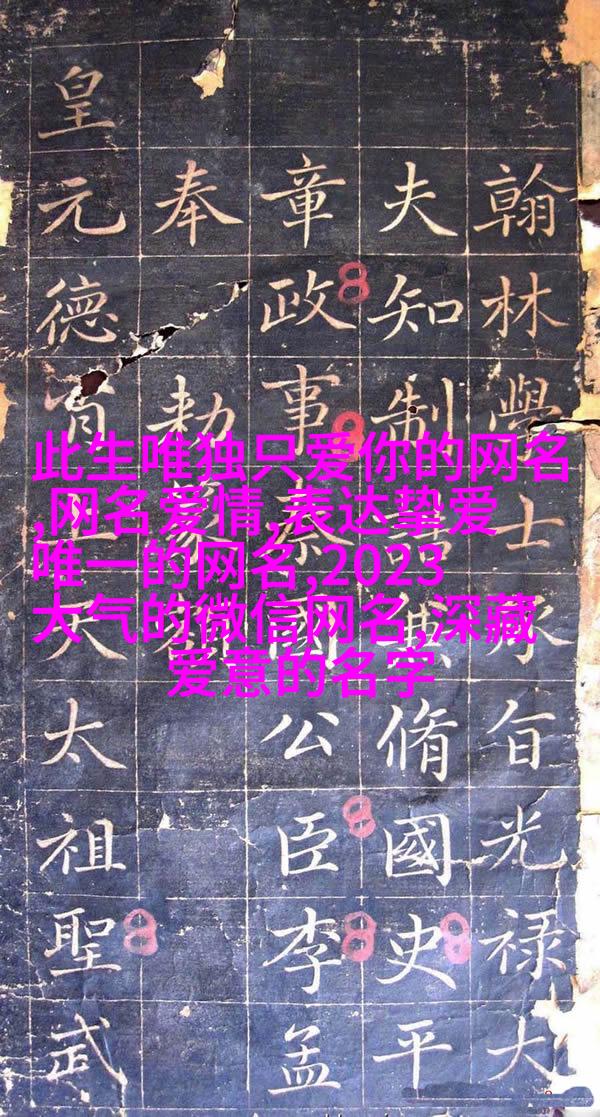 此生唯独只爱你的网名
,网名爱情,表达挚爱
唯一的网名,2023
大气的微信网名,深藏
爱意的名字
翰林學士承旨光禄大
夫知制誥兼脩國史平
章政事秦國公臣李孟
奉勅
皇元德天太祖聖武